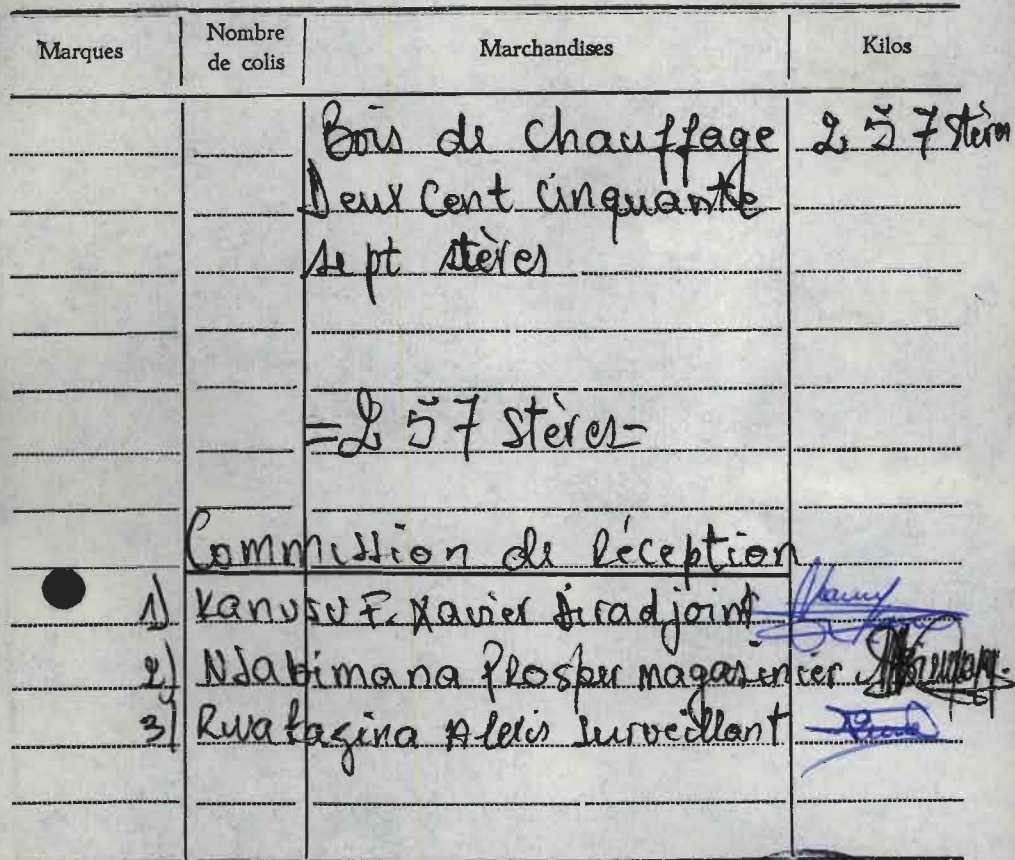 Marques Nombre de colis Marchandises Kilos
Bois de Chauffage 257 Stères
Deux Cent Cinquante
sept stères
=257 Stères=
Commission de Réception
1) Kanusu F. Xavier Diradjoint
2) Ndabimana Prosper magasinier
3) Rwatagina Alexis Surveillant